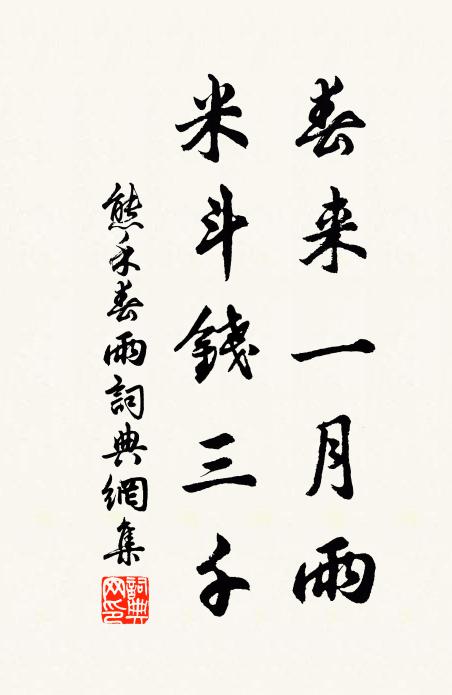 春来一月雨
米斗錢三千
熊禾春雨詞典網集
詞典网印